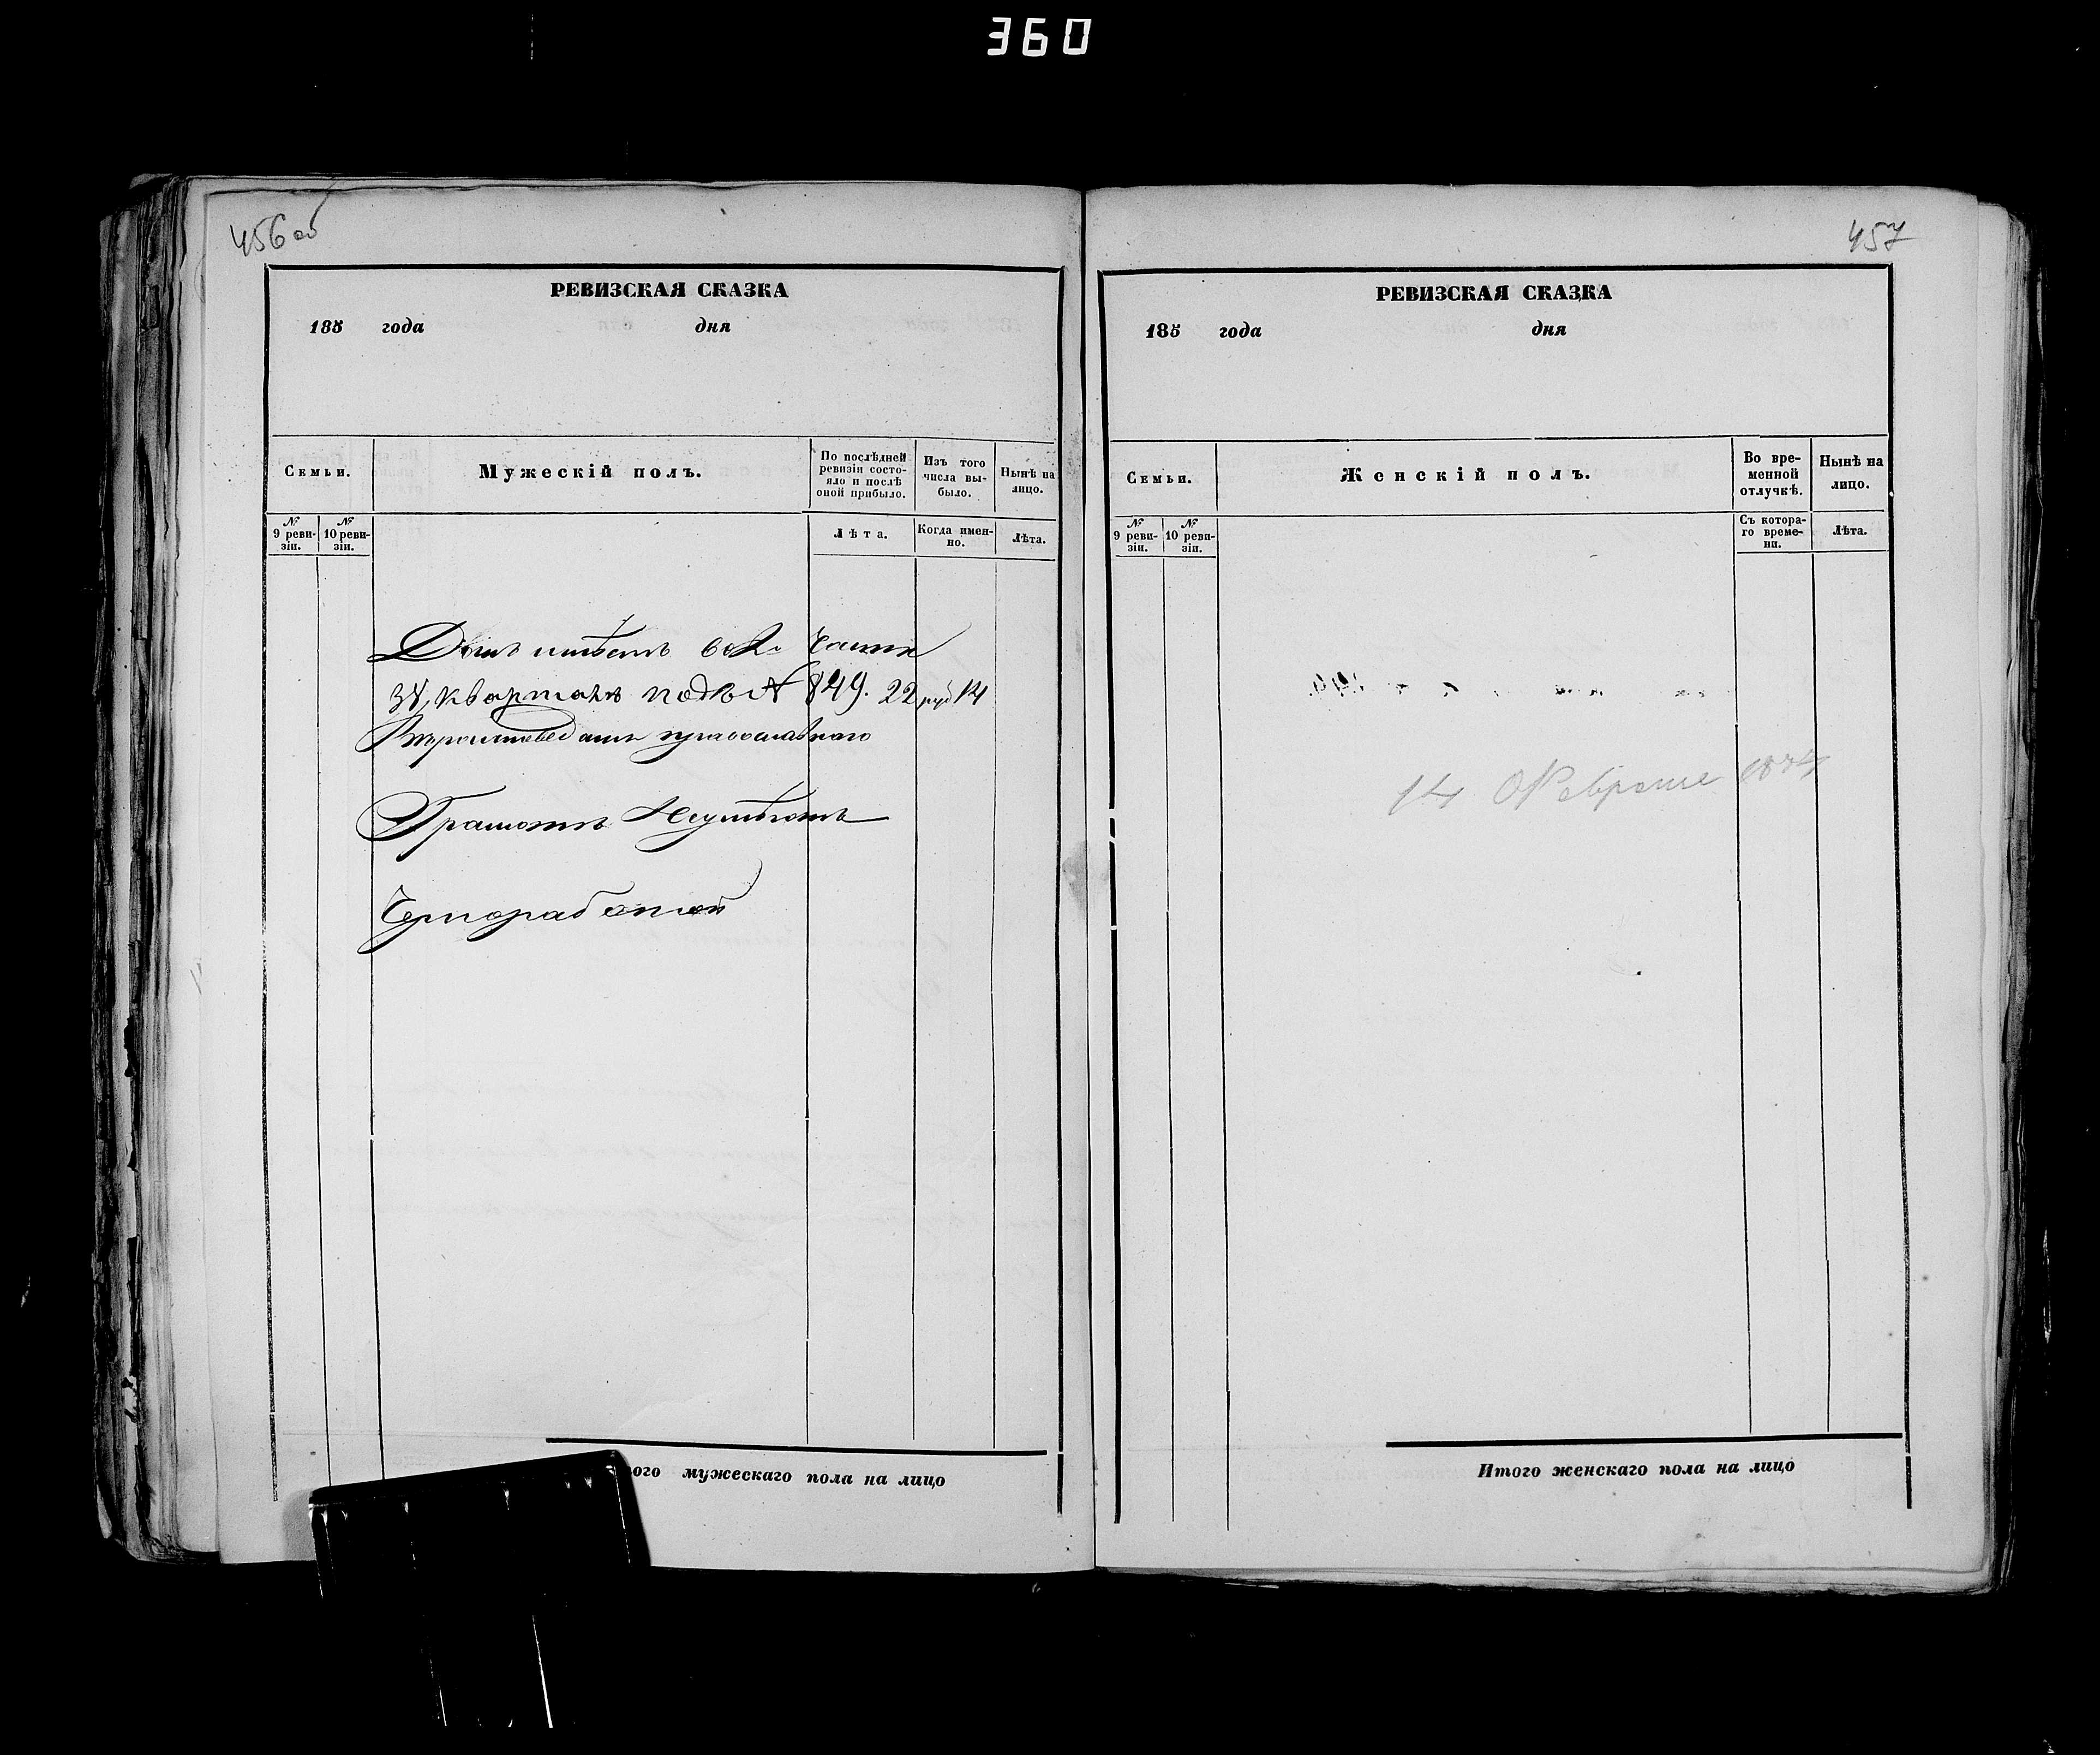 360
456 об
РЕВИЗСКАЯ СКАЗКА
185 года дня
Семьи.
Мужескій полъ.
По послѣдней ревизіи состояло и послѣ оной прибыло.
Изъ того числа выбыло.
Нынѣ на лицо.
№ 9 ревизіи.
№ 10 ревизіи.
Лѣта.
Когда именно.
Лѣта.
Домъ имѣетъ во 2й части
3й кварталъ подъ № 849. 22 руб 14
Вѣроисповеданія православнаго
Грамоты Неумѣетъ
Чернорабочій
ого мужескаго пола на лицо
457
РЕВИЗСКАЯ СКАЗКА
185 года дня
Семьи.
Женскій полъ.
Во временной отлучкѣ.
Нынѣ на лицо.
№ 9 ревизіи.
№ 10 ревизіи.
Съ котораго времени.
Лѣта.
14 Февраля 1874
Итого женскаго пола на лицо